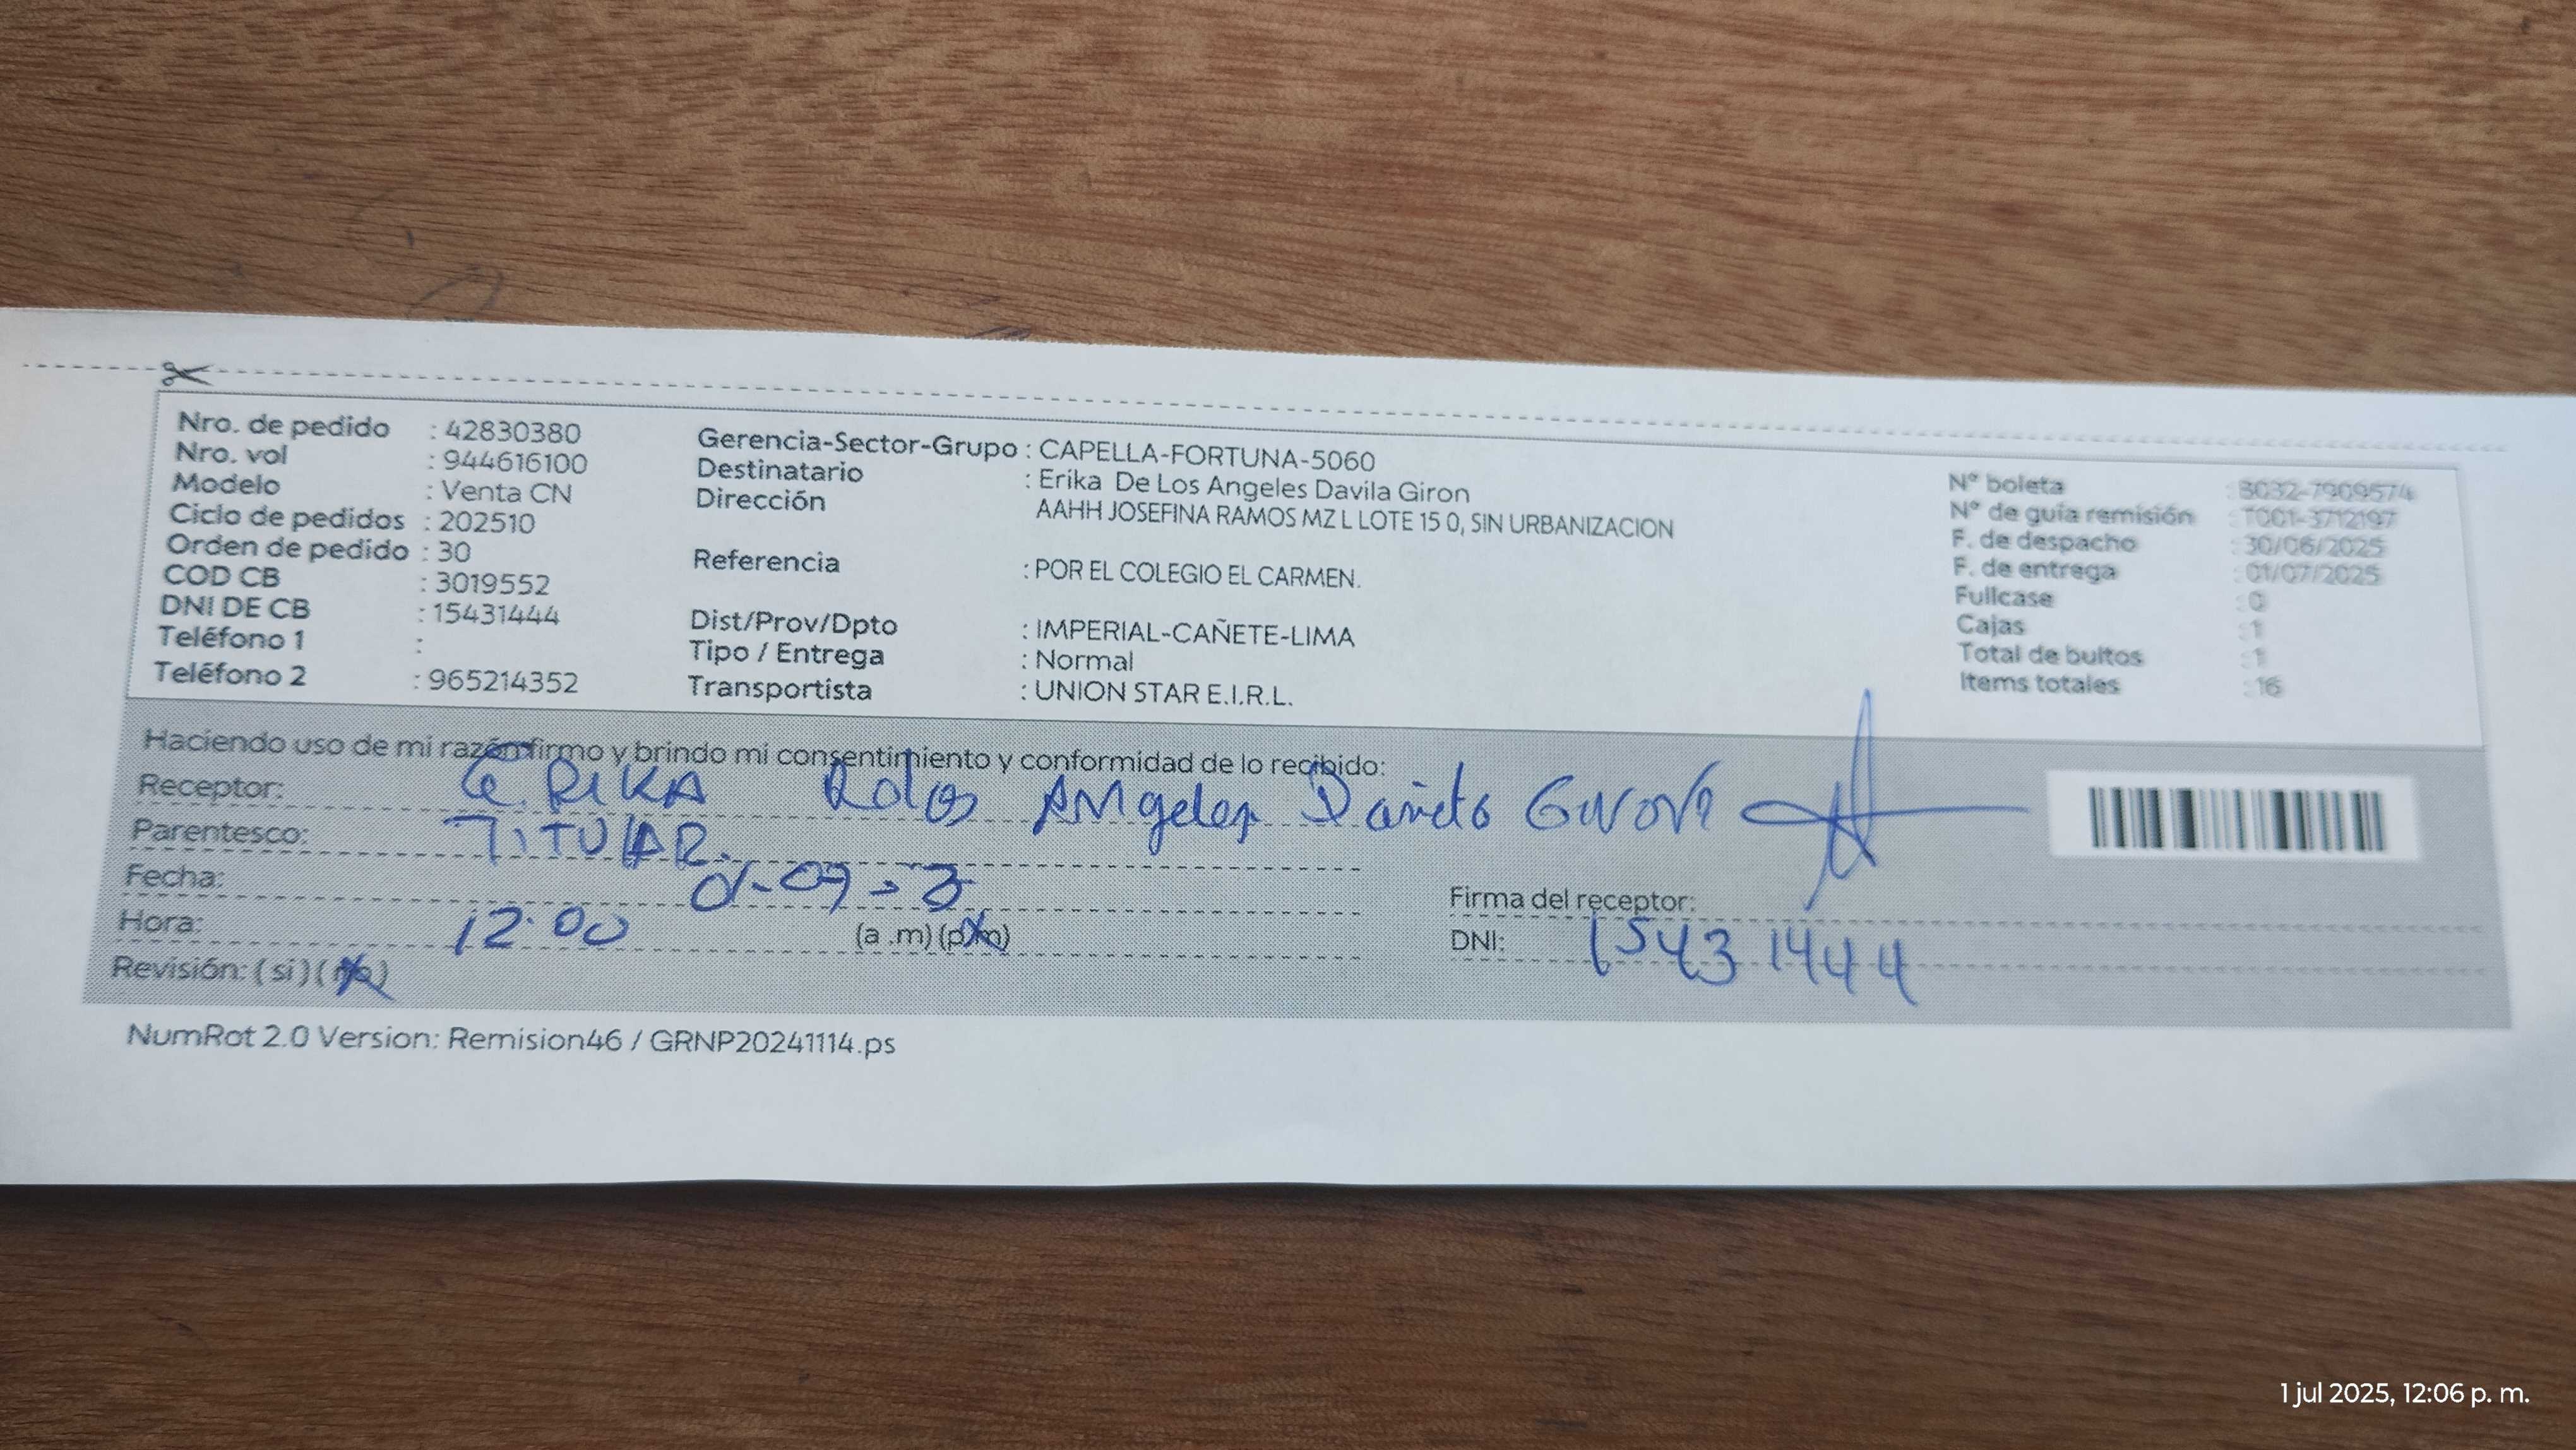 Nro. de pedido : 42830380
Nro. vol : 944616100
Modelo : Venta CN
Ciclo de pedidos : 202510
Orden de pedido : 30
COD CB : 3019552
DNI DE CB : 15431444
Teléfono 1 :
Teléfono 2 : 965214352
Gerencia-Sector-Grupo : CAPELLA-FORTUNA-5060
Destinatario : Erika De Los Angeles Davila Giron
Dirección AAHH JOSEFINA RAMOS MZ L LOTE 15 0, SIN URBANIZACION
Referencia : POR EL COLEGIO EL CARMEN.
Dist/Prov/Dpto : IMPERIAL-CAÑETE-LIMA
Tipo / Entrega : Normal
Transportista : UNION STAR E.I.R.L.
N° boleta : B032-7909574
N° de guía remisión : T001-3712197
F. de despacho : 30/06/2025
F. de entrega : 01/07/2025
Fullcase : 0
Cajas : 1
Total de bultos : 1
Items totales : 16
Haciendo uso de mi razón firmo y brindo mi consentimiento y conformidad de lo recibido:
Receptor: ERIKA Angeles
Parentesco: TITULAR.
Fecha:
Hora: 12:00 (a .m) (p.m)
Revisión: ( si ) ( no )
Firma del receptor:
DNI: 15431444
NumRot 2.0 Version: Remision46 / GRNP20241114.ps
1 jul 2025, 12:06 p. m.